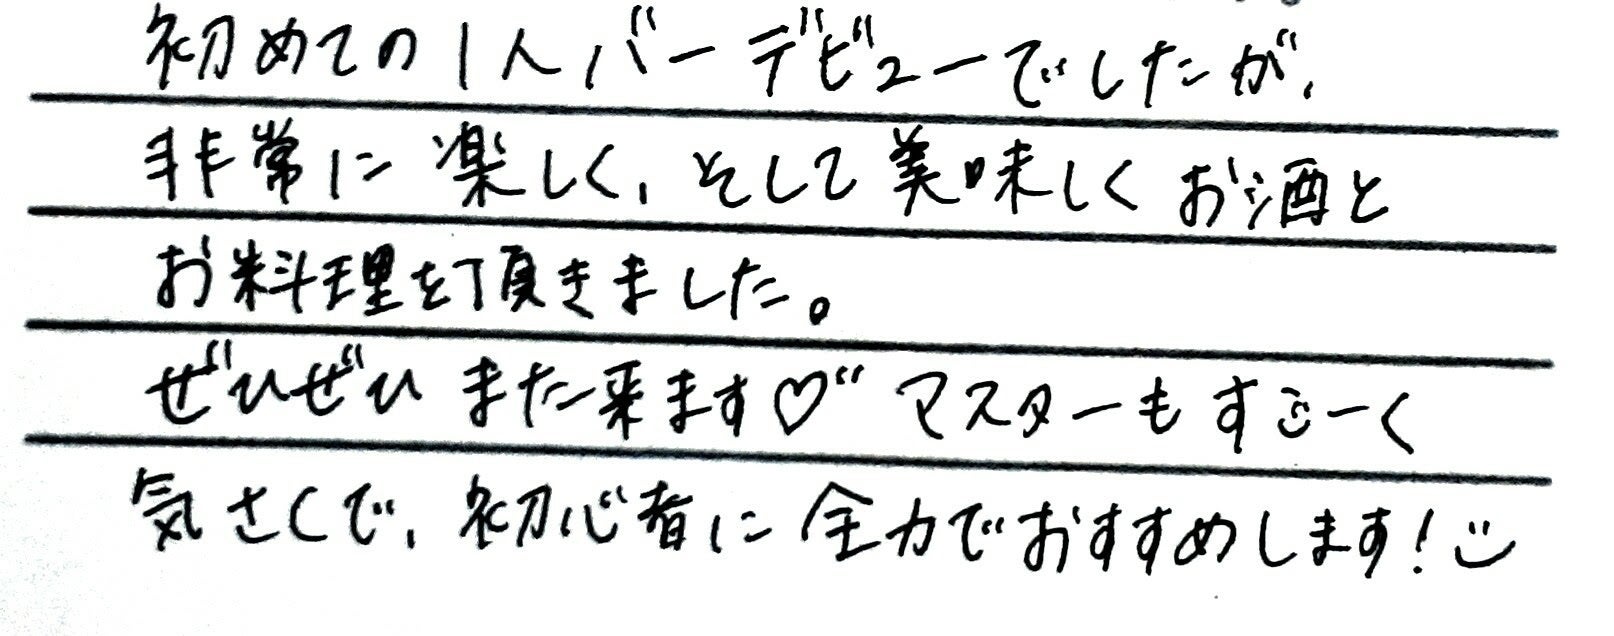 初めての1人バーデビューでしたが、
非常に楽しく、そして美味しくお酒と
お料理を頂きました。
ぜひぜひまた来ます♡" マスターもすごーく
気さくで、初心者に全力でおすすめします！